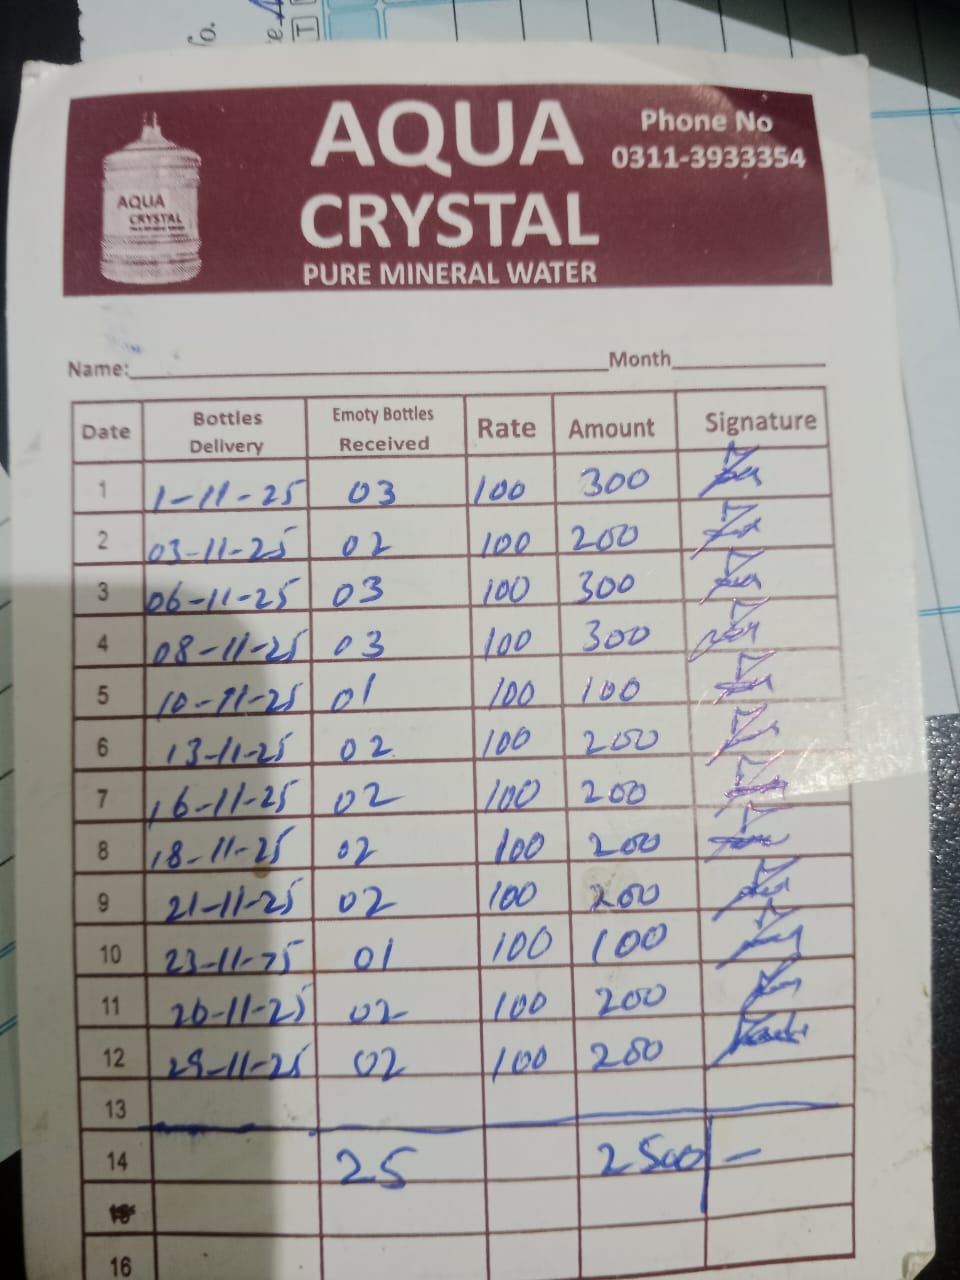 AQUA
CRYSTAL
PURE MINERAL WATER
Phone No
0311-3933354
AQUA
CRYSTAL
Name: Month
Date Bottles Delivery Emoty Bottles Received Rate Amount Signature
1 1-11-25 03 100 300
2 03-11-25 02 100 200
3 06-11-25 03 100 300
4 08-11-25 03 100 300
5 10-11-25 01 100 100
6 13-11-25 02 100 200
7 16-11-25 02 100 200
8 18-11-25 02 100 200
9 21-11-25 02 100 200
10 23-11-25 01 100 100
11 26-11-25 02 100 200
12 29-11-25 02 100 200
13
14 25 2500 -
15
16